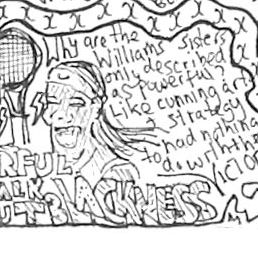 Why are the
Williams Sisters
only described
as powerful?
Like cunning and
strategy
had nothing
to do with th
(c) or
ERFUL
ALK
UT BLACKNESS